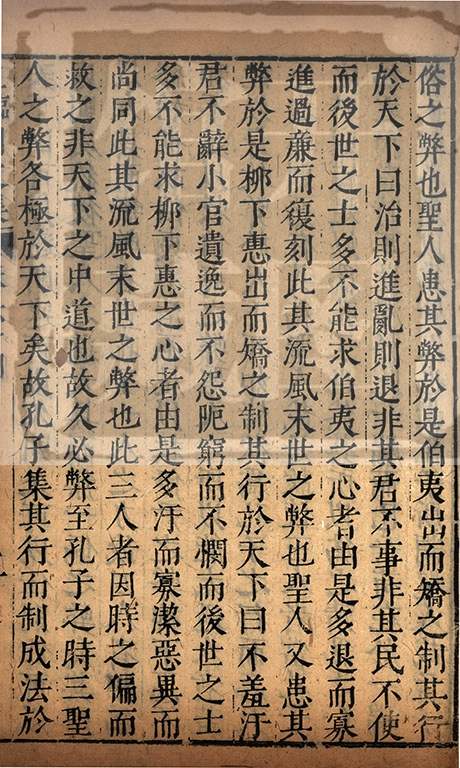 俗之弊也聖人患其弊於是伯夷出而矯之制其行
於天下曰治則進亂則退非其君不事非其民不使
而後世之士多不能求伯夷之心者由是多退而寡
進過亷而復刻此其流風末世之弊也聖人又患其
弊於是栁下惠出而矯之制其行於天下曰不羞汙
君不辭小官遺逸而不怨阨窮而不憫而後世之士
多不能求栁下惠之心者由是多汙而寡潔惡異而
尚同此其流風末世之弊也此三人者因時之偏而
救之非天下之中道也故久必弊至孔子之時三聖
人之弊各極於天下矣故孔子集其行而制成法於